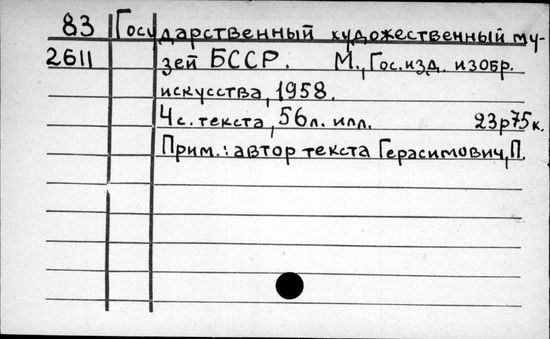 83 Государственный художественный му-
2611 зей БССР. М., Гос.изд. изобр.
искусства, 1958.
4 с. текста, 56 л. илл. 23р75к.
Прим.: автор текста Герасимович, П.